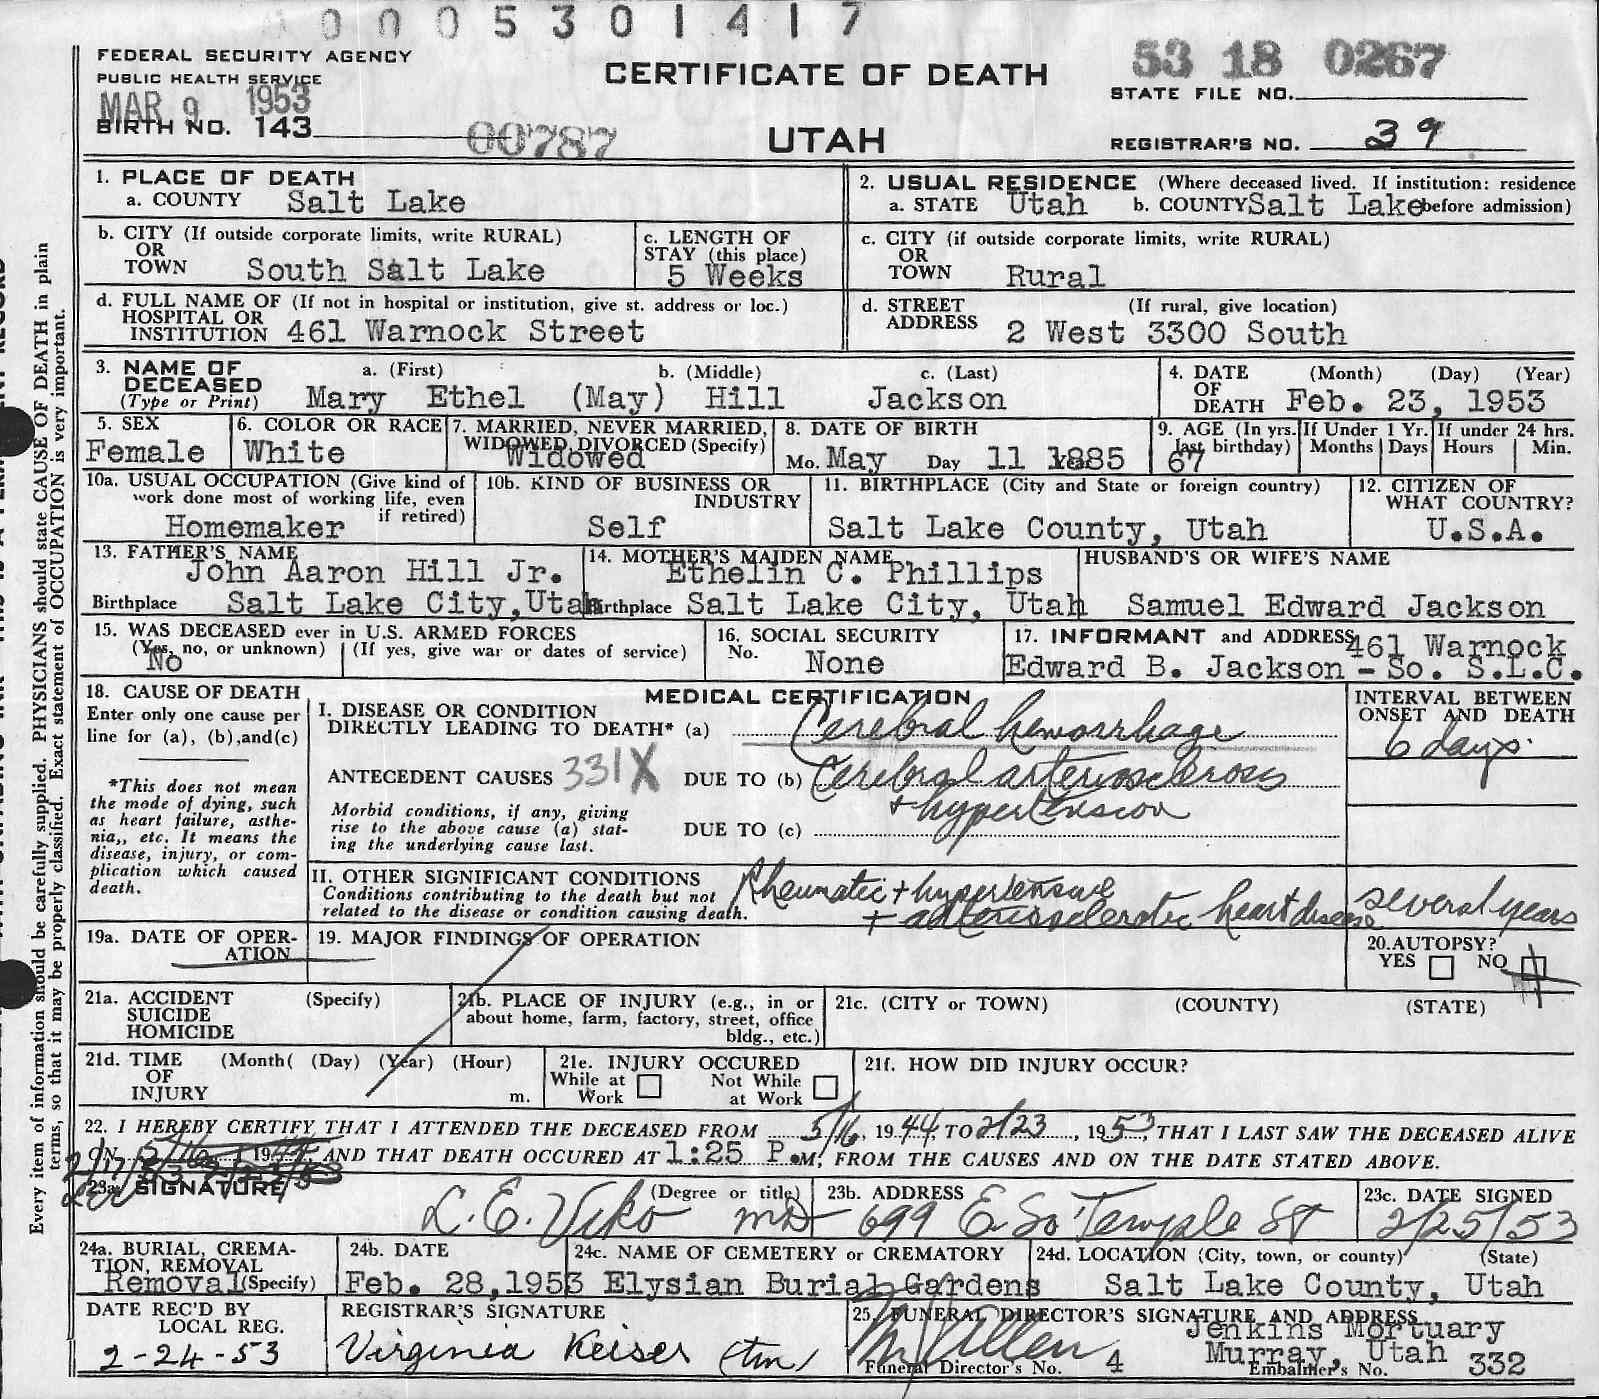 0005301417
FEDERAL SECURITY AGENCY
PUBLIC HEALTH SERVICE
MAR 9 1953
BIRTH NO. 143
00787
CERTIFICATE OF DEATH
UTAH
53 18 0267
STATE FILE NO.
REGISTRAR'S NO. 39
Every item of information should be carefully supplied. PHYSICIANS should state CAUSE OF DEATH in plain
terms, so that it may be properly classified. Exact statement of OCCUPATION is very important.
1. PLACE OF DEATH
a. COUNTY Salt Lake
2. USUAL RESIDENCE (Where deceased lived. If institution: residence
a. STATE Utah b. COUNTY Salt Lake before admission)
b. CITY (If outside corporate limits, write RURAL)
OR
TOWN South Salt Lake
c. LENGTH OF
STAY (this place)
5 Weeks
c. CITY (if outside corporate limits, write RURAL)
OR
TOWN Rural
d. FULL NAME OF (If not in hospital or institution, give st. address or loc.)
HOSPITAL OR
INSTITUTION 461 Warnock Street
d. STREET (If rural, give location)
ADDRESS 2 West 3300 South
3. NAME OF a. (First) b. (Middle) c. (Last)
DECEASED
(Type or Print) Mary Ethel (May) Hill Jackson
4. DATE (Month) (Day) (Year)
OF
DEATH Feb. 23, 1953
5. SEX
Female
6. COLOR OR RACE
White
7. MARRIED, NEVER MARRIED,
WIDOWED, DIVORCED (Specify)
Widowed
8. DATE OF BIRTH
Mo. May Day 11 Year 1885
9. AGE (In yrs.
last birthday)
67
If Under 1 Yr.
Months Days
If under 24 hrs.
Hours Min.
10a. USUAL OCCUPATION (Give kind of
work done most of working life, even
if retired)
Homemaker
10b. KIND OF BUSINESS OR
INDUSTRY
Self
11. BIRTHPLACE (City and State or foreign country)
Salt Lake County, Utah
12. CITIZEN OF
WHAT COUNTRY?
U.S.A.
13. FATHER'S NAME
John Aaron Hill Jr.
Birthplace Salt Lake City, Utah
14. MOTHER'S MAIDEN NAME
Ethelin C. Phillips
Birthplace Salt Lake City, Utah
HUSBAND'S OR WIFE'S NAME
Samuel Edward Jackson
15. WAS DECEASED ever in U.S. ARMED FORCES
(Yes, no, or unknown) (If yes, give war or dates of service)
No
16. SOCIAL SECURITY
No. None
17. INFORMANT and ADDRESS 461 Warnock
Edward B. Jackson - So. S.L.C.
18. CAUSE OF DEATH
Enter only one cause per
line for (a), (b), and (c)
*This does not mean
the mode of dying, such
as heart failure, asthe-
nia,, etc. It means the
disease, injury, or com-
plication which caused
death.
MEDICAL CERTIFICATION
I. DISEASE OR CONDITION
DIRECTLY LEADING TO DEATH* (a) Cerebral hemorrhage
ANTECEDENT CAUSES 331X DUE TO (b) Cerebral arteriosclerosis
+ hypertension
Morbid conditions, if any, giving
rise to the above cause (a) stat-
ing the underlying cause last.
DUE TO (c)
INTERVAL BETWEEN
ONSET AND DEATH
6 days.
II. OTHER SIGNIFICANT CONDITIONS
Conditions contributing to the death but not
related to the disease or condition causing death.
Rheumatic + hypertensive
+ arteriosclerotic heart disease several years
19a. DATE OF OPER-
ATION
19. MAJOR FINDINGS OF OPERATION
20. AUTOPSY?
YES NO
21a. ACCIDENT (Specify)
SUICIDE
HOMICIDE
21b. PLACE OF INJURY (e.g., in or
about home, farm, factory, street, office
bldg., etc.)
21c. (CITY or TOWN) (COUNTY) (STATE)
21d. TIME (Month( (Day) (Year) (Hour)
OF
INJURY m.
21e. INJURY OCCURED
While at Work Not While at Work
21f. HOW DID INJURY OCCUR?
22. I HEREBY CERTIFY THAT I ATTENDED THE DECEASED FROM 5/16, 1944, TO 2/23, 1953, THAT I LAST SAW THE DECEASED ALIVE
ON 5/16, 1944, AND THAT DEATH OCCURED AT 1:25 P.M, FROM THE CAUSES AND ON THE DATE STATED ABOVE.
23a. SIGNATURE (Degree or title)
L. E. Viko MD
23b. ADDRESS
699 E So Temple St
23c. DATE SIGNED
2/25/53
24a. BURIAL, CREMA-
TION, REMOVAL
Removal (Specify)
24b. DATE
Feb. 28, 1953
24c. NAME OF CEMETERY or CREMATORY
Elysian Burial Gardens
24d. LOCATION (City, town, or county) (State)
Salt Lake County, Utah
DATE REC'D BY
LOCAL REG.
2-24-53
REGISTRAR'S SIGNATURE
Virginia Keiser (tm)
25. FUNERAL DIRECTOR'S SIGNATURE AND ADDRESS
Jenkins Mortuary
Murray, Utah
Funeral Director's No. 4 Embalmer's No. 332